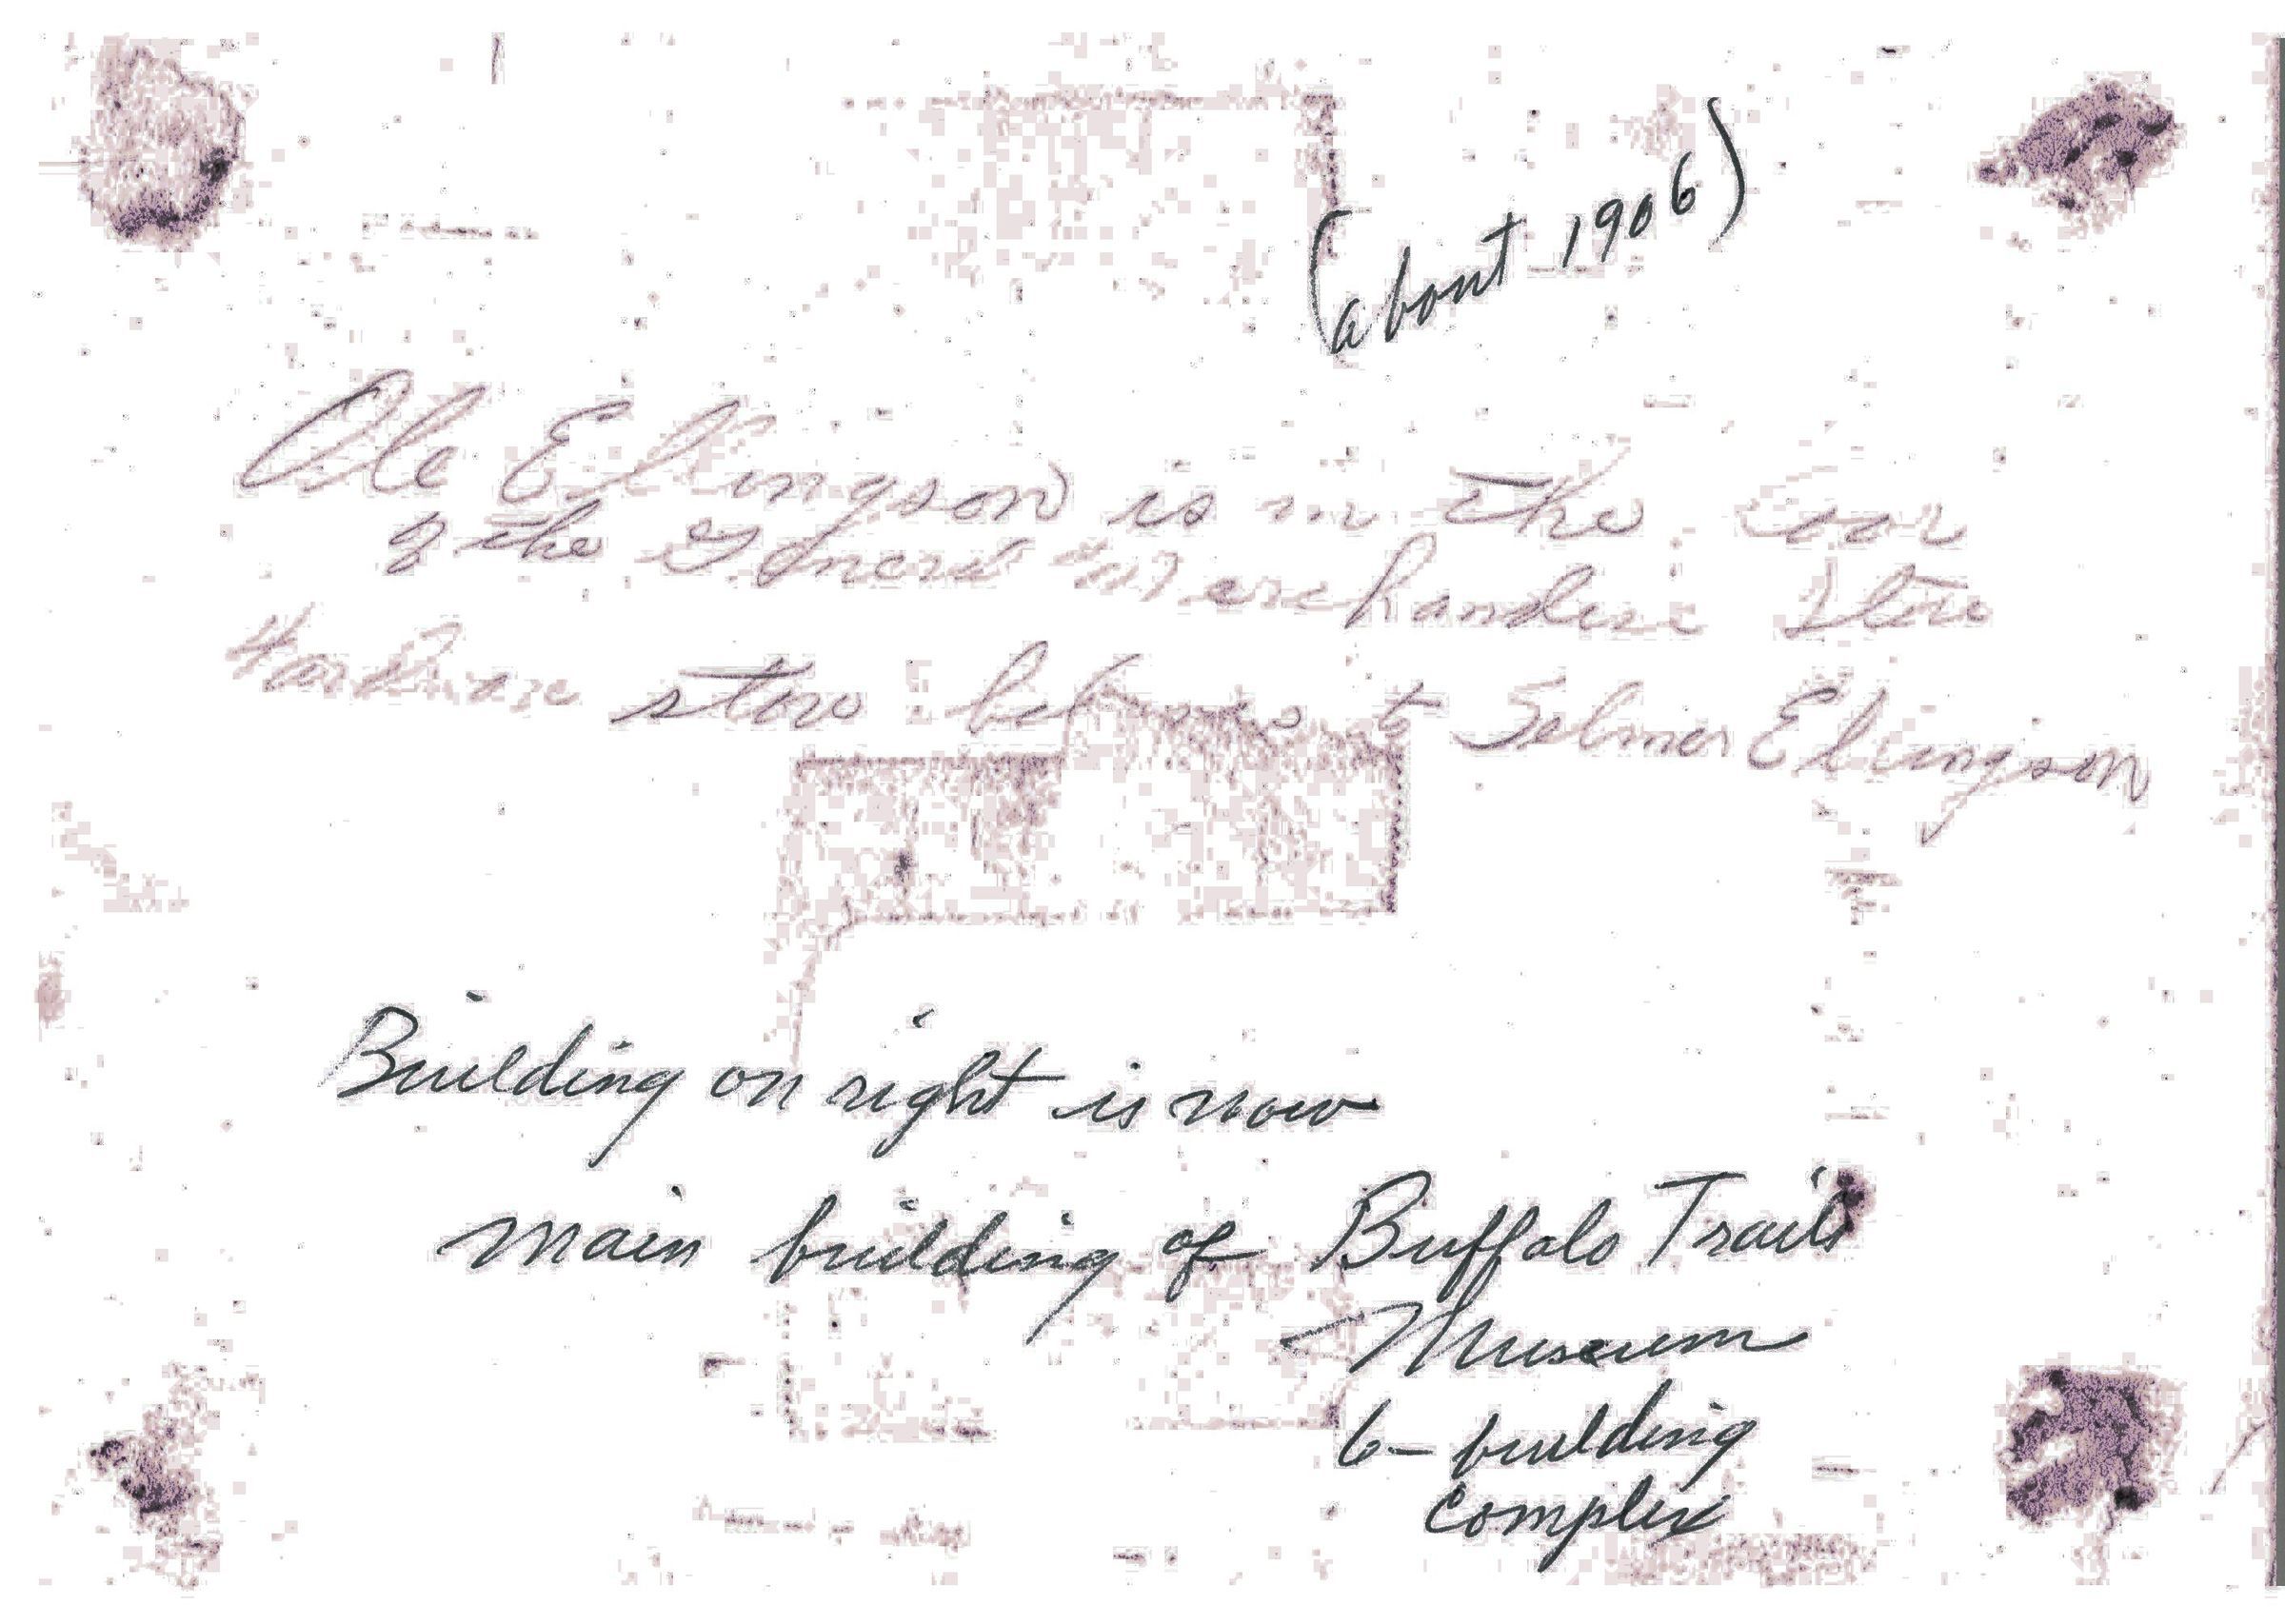 (about 1906)
Ole Ellingson is in the
of the General Merchandise Store
Hardware store belongs to Selmer Ellingson
Building on right is now
main building of Buffalo Trails
Museum
6-building
complex